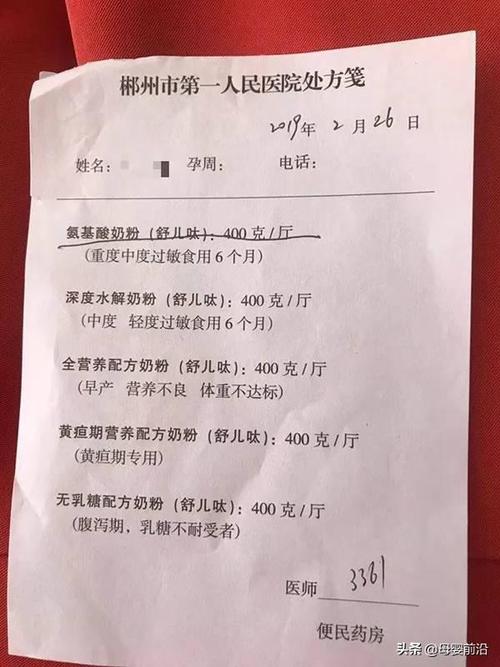 郴州市第一人民医院处方笺
2019年 2 月 26 日
姓名： 孕周： 电话：
氨基酸奶粉（舒儿呔）：400 克/厅
（重度中度过敏食用6个月）
深度水解奶粉（舒儿呔）：400 克/厅
（中度 轻度过敏食用6个月）
全营养配方奶粉（舒儿呔）：400 克/厅
（早产 营养不良 体重不达标）
黄疸期营养配方奶粉（舒儿呔）：400 克/厅
（黄疸期专用）
无乳糖配方奶粉（舒儿呔）：400 克/厅
（腹泻期，乳糖不耐受者）
医师 3361
便民药房
头条 @母婴前沿